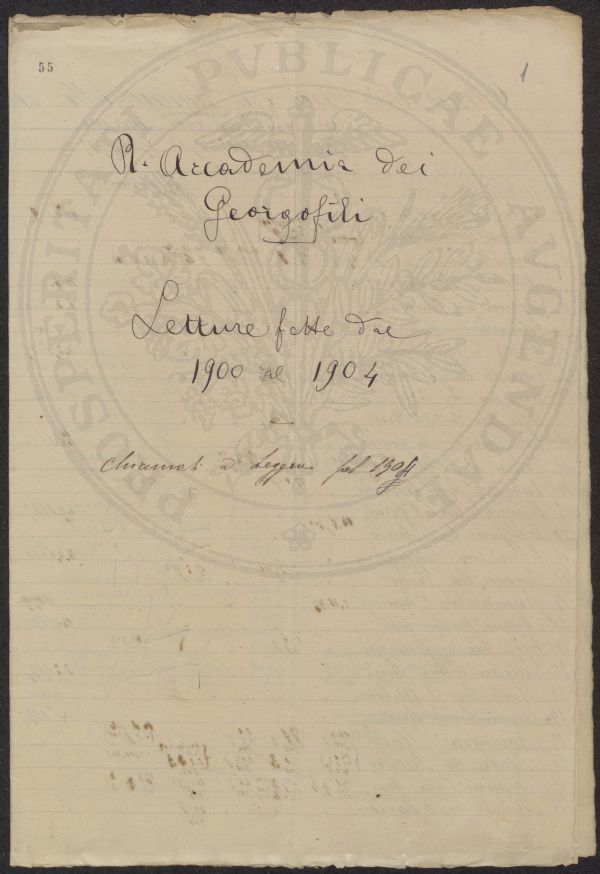 55
1
R. Accademia dei
Georgofili
Letture fatte dal
1900 al 1904
chiamati a leggere pel 190
PROSPERITATI PVBLICAE AVGENDAE